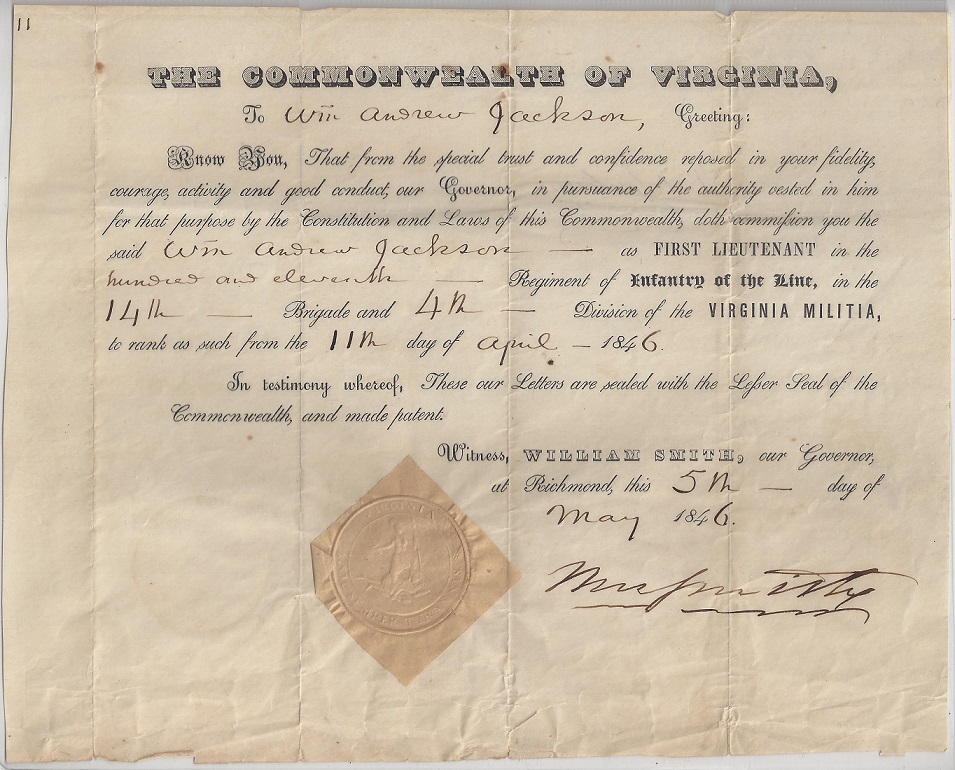 11
THE COMMONWEALTH OF VIRGINIA,
To Wm Andrew Jackson, Greeting:
Know You, That from the special trust and confidence reposed in your fidelity,
courage, activity and good conduct, our Governor, in pursuance of the authority vested in him
for that purpose by the Constitution and Laws of this Commonwealth, doth commiſsion you the
said Wm Andrew Jackson — as FIRST LIEUTENANT in the
hundred and eleventh — Regiment of Infantry of the Line, in the
14th — Brigade and 4th — Division of the VIRGINIA MILITIA,
to rank as such from the 11th day of April – 1846.
In testimony whereof, These our Letters are sealed with the Leſser Seal of the
Commonwealth, and made patent.
Witness, WILLIAM SMITH, our Governor,
at Richmond, this 5th — day of
May 1846.
Wm Smith
VIRGINIA